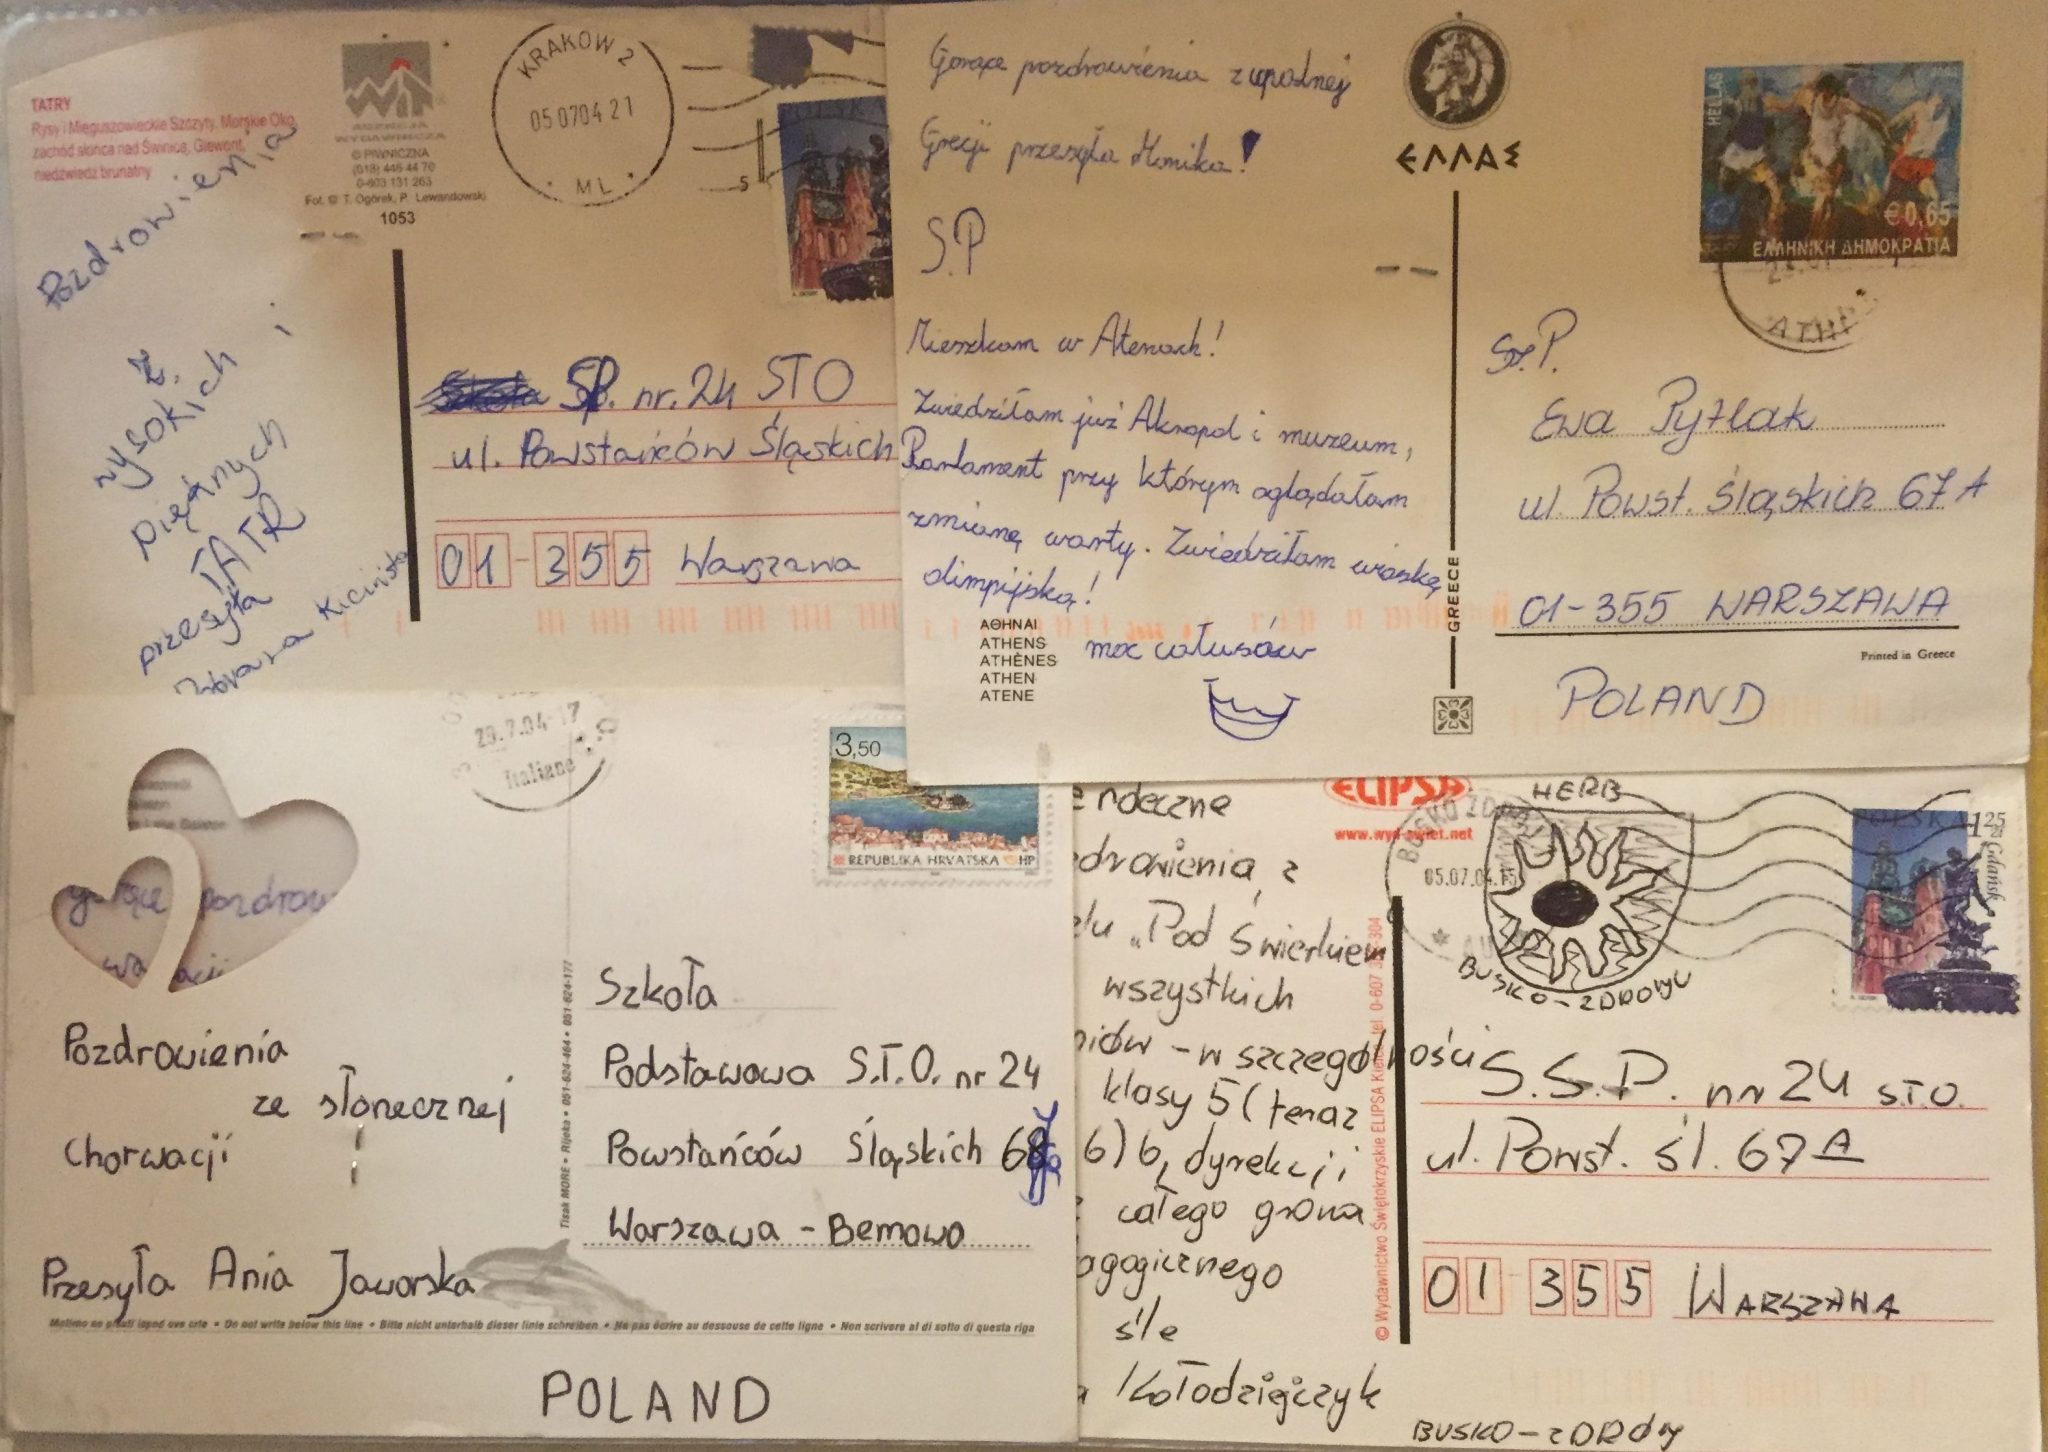 TATRY
Rysy i Mięguszowieckie Szczyty, Morskie Oko,
zachód słońca nad Świnicą, Giewont,
niedźwiedź brunatny
WiT
AGENCJA
WYDAWNICZA
© PIWNICZNA
(018) 446 44 70
0-603 131 263
Fot. © T. Ogórek, P. Lewandowski
1053
KRAKOW 2
05 07 04 21
ML
Pozdrowienia
z
wysokich i
pięknych
TATR
przesyła
SP. nr. 24 STO
ul. Powstańców Śląskich
01-355 Warszawa
Gorące pozdrowienia z upalnej
Grecji przesyła Monika!
S.P
Mieszkam w Atenach!
Zwiedziłam już Akropol i muzeum,
Parlament przy którym oglądałam
zmianę warty. Zwiedziłam wioskę
olimpijską!
moc całusów
ΑΘΗΝΑΙ
ATHENS
ATHÈNES
ATHEN
ATENE
ΕΛΛΑΣ
GREECE
HELLAS
€0,65
ΕΛΛΗΝΙΚΗ ΔΗΜΟΚΡΑΤΙΑ
Sz.P.
Ewa Pytlak
ul. Powst. Śląskich 67A
01-355 WARSZAWA
Printed in Greece
POLAND
29.7.04-17
Italiane
3,50
REPUBLIKA HRVATSKA HP
gorące pozdrow
Pozdrowienia
ze słonecznej
Chorwacji
Przesyła Ania Jaworska
Tisak MORE • Rijeka • 051-624-464 • 051-624-177
Szkoła
Podstawowa S.T.O. nr 24
Powstańców Śląskich
Warszawa - Bemowo
Molimo ne pisati ispod ove crte • Do not write below this line • Bitte nicht unterhalb dieser linie schreiben • Ne pas écrire au dessouse de cette ligne • Non scrivere al di sotto di questa riga
POLAND
erdeczne
drowienia z
elu „Pod Świerkiem
wszystkich
niów - w szczególności
klasy 5 (teraz
6) b, dyrekcji
całego grona
agogicznego
śle
Kołodziejczyk
ELIPSA
www.wyd-swiet.net
© Wydawnictwo Świętokrzyskie ELIPSA
BUSKO ZDRÓJ
05.07.04.15
HERB
BUSKO-ZDROJU
POLSKA
1 25 zł
Gdańsk
S.S.P. nr 24 S.T.O.
ul. Powst. Śl. 67A
01 355 WARSZAWA